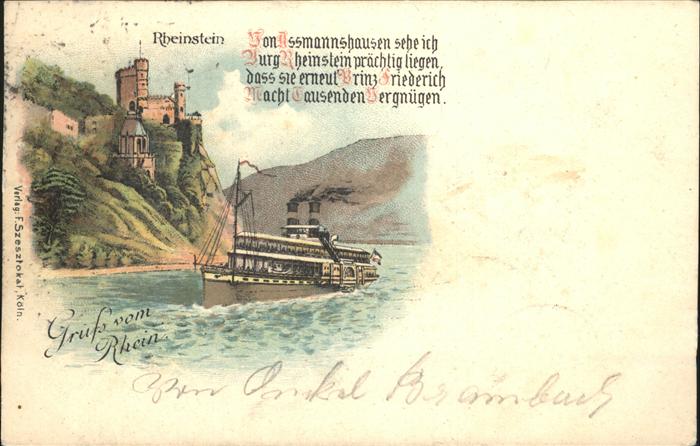 Rheinstein
Von Assmannshausen sehe ich
Burg Rheinstein prächtig liegen,
dass sie erneut Prinz Friederich
Macht Tausenden Vergnügen.
Verlag: F. Szesztokat, Köln.
Gruß vom
Rhein.
Von Onkel Brambach